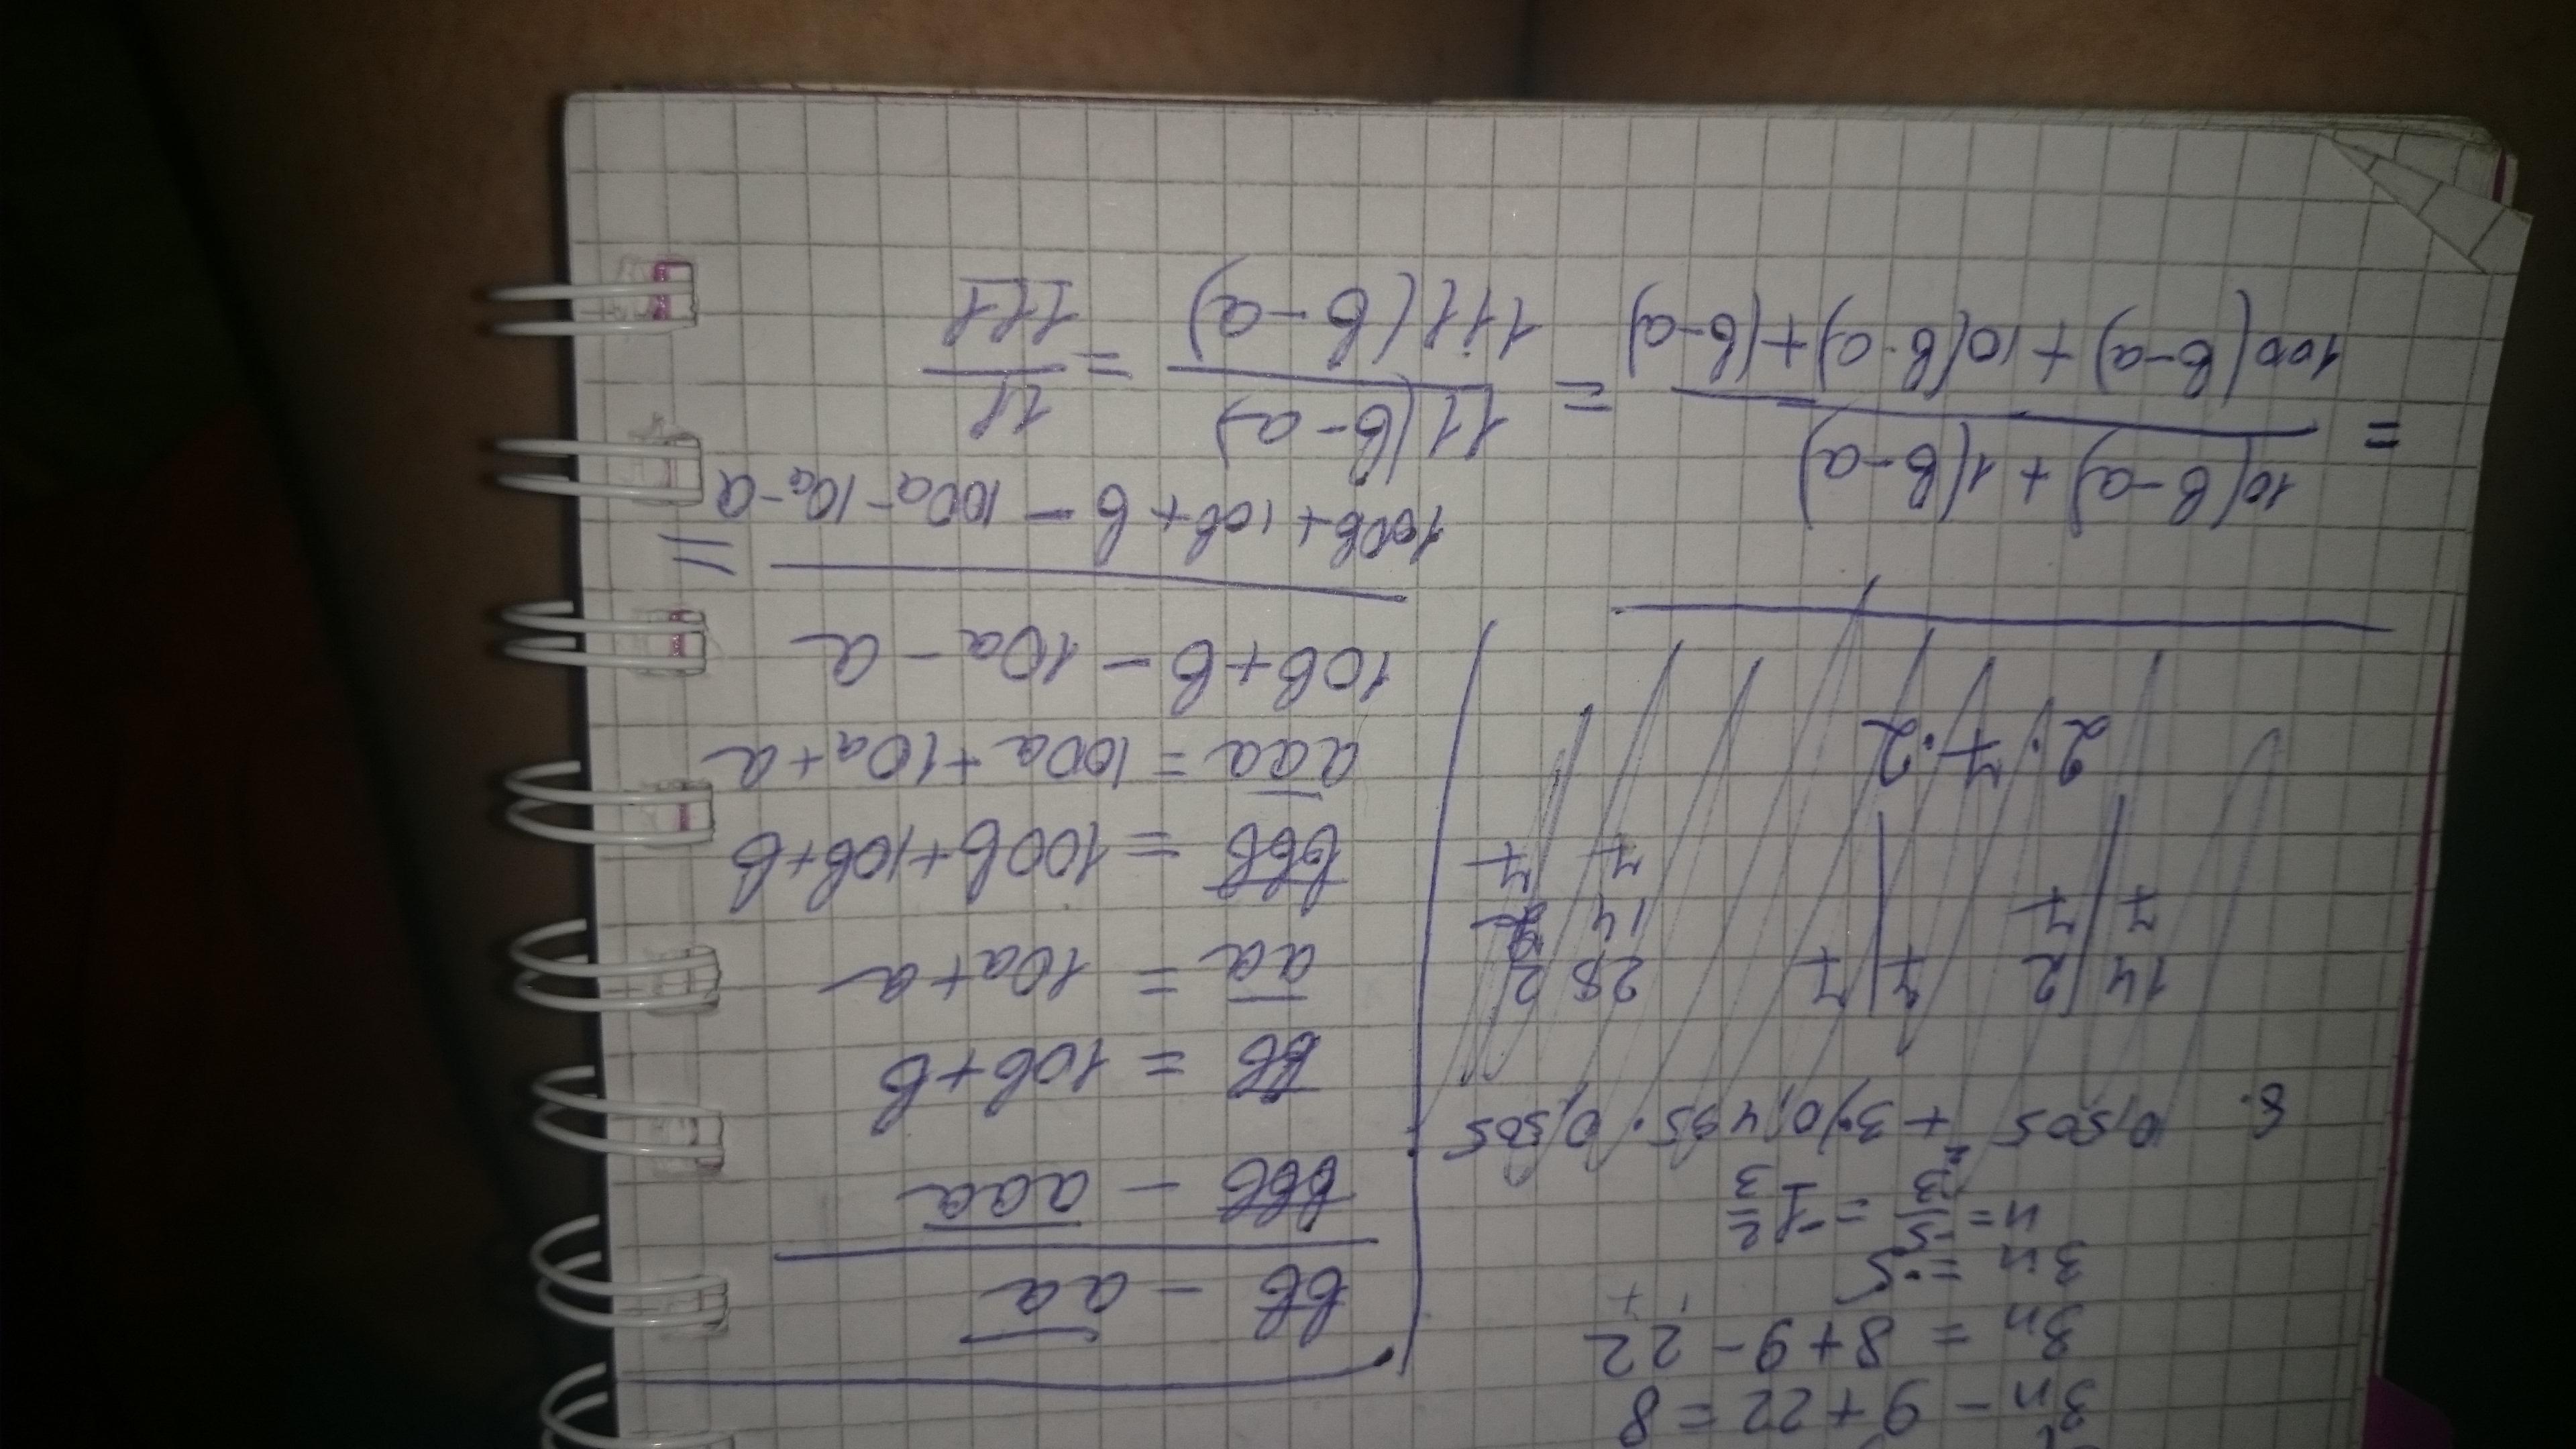 3n - 9 + 22 = 8
3n = 8 + 9 - 22
3n = -5
n = -5/3 = -1 2/3
14 | 2 7 | 7 28 2
7 7 14 2
7 7
2·7·2
bb - aa
bbb - aaa
bb = 10b + b
aa = 10a + a
bbb = 100b + 10b + b
aaa = 100a + 10a + a
10b + b - 10a - a
100b + 10b + b - 100a - 10a - a =
10(b-a) + 1(b-a) 11(b-a) 11
= = =
100(b-a) + 10(b-a) + (b-a) 111(b-a) 111